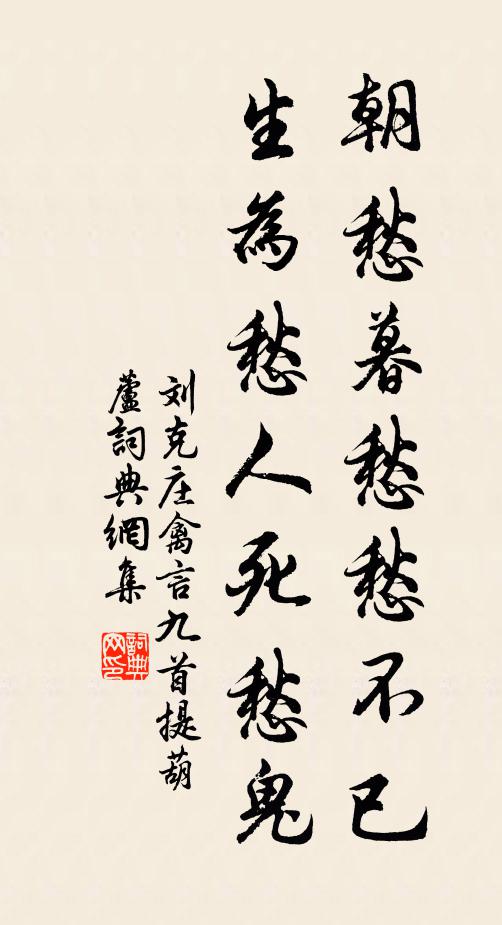 朝愁暮愁愁不已
生為愁人死愁鬼
刘克庄禽言九首提葫
蘆詞典網集
詞典網印